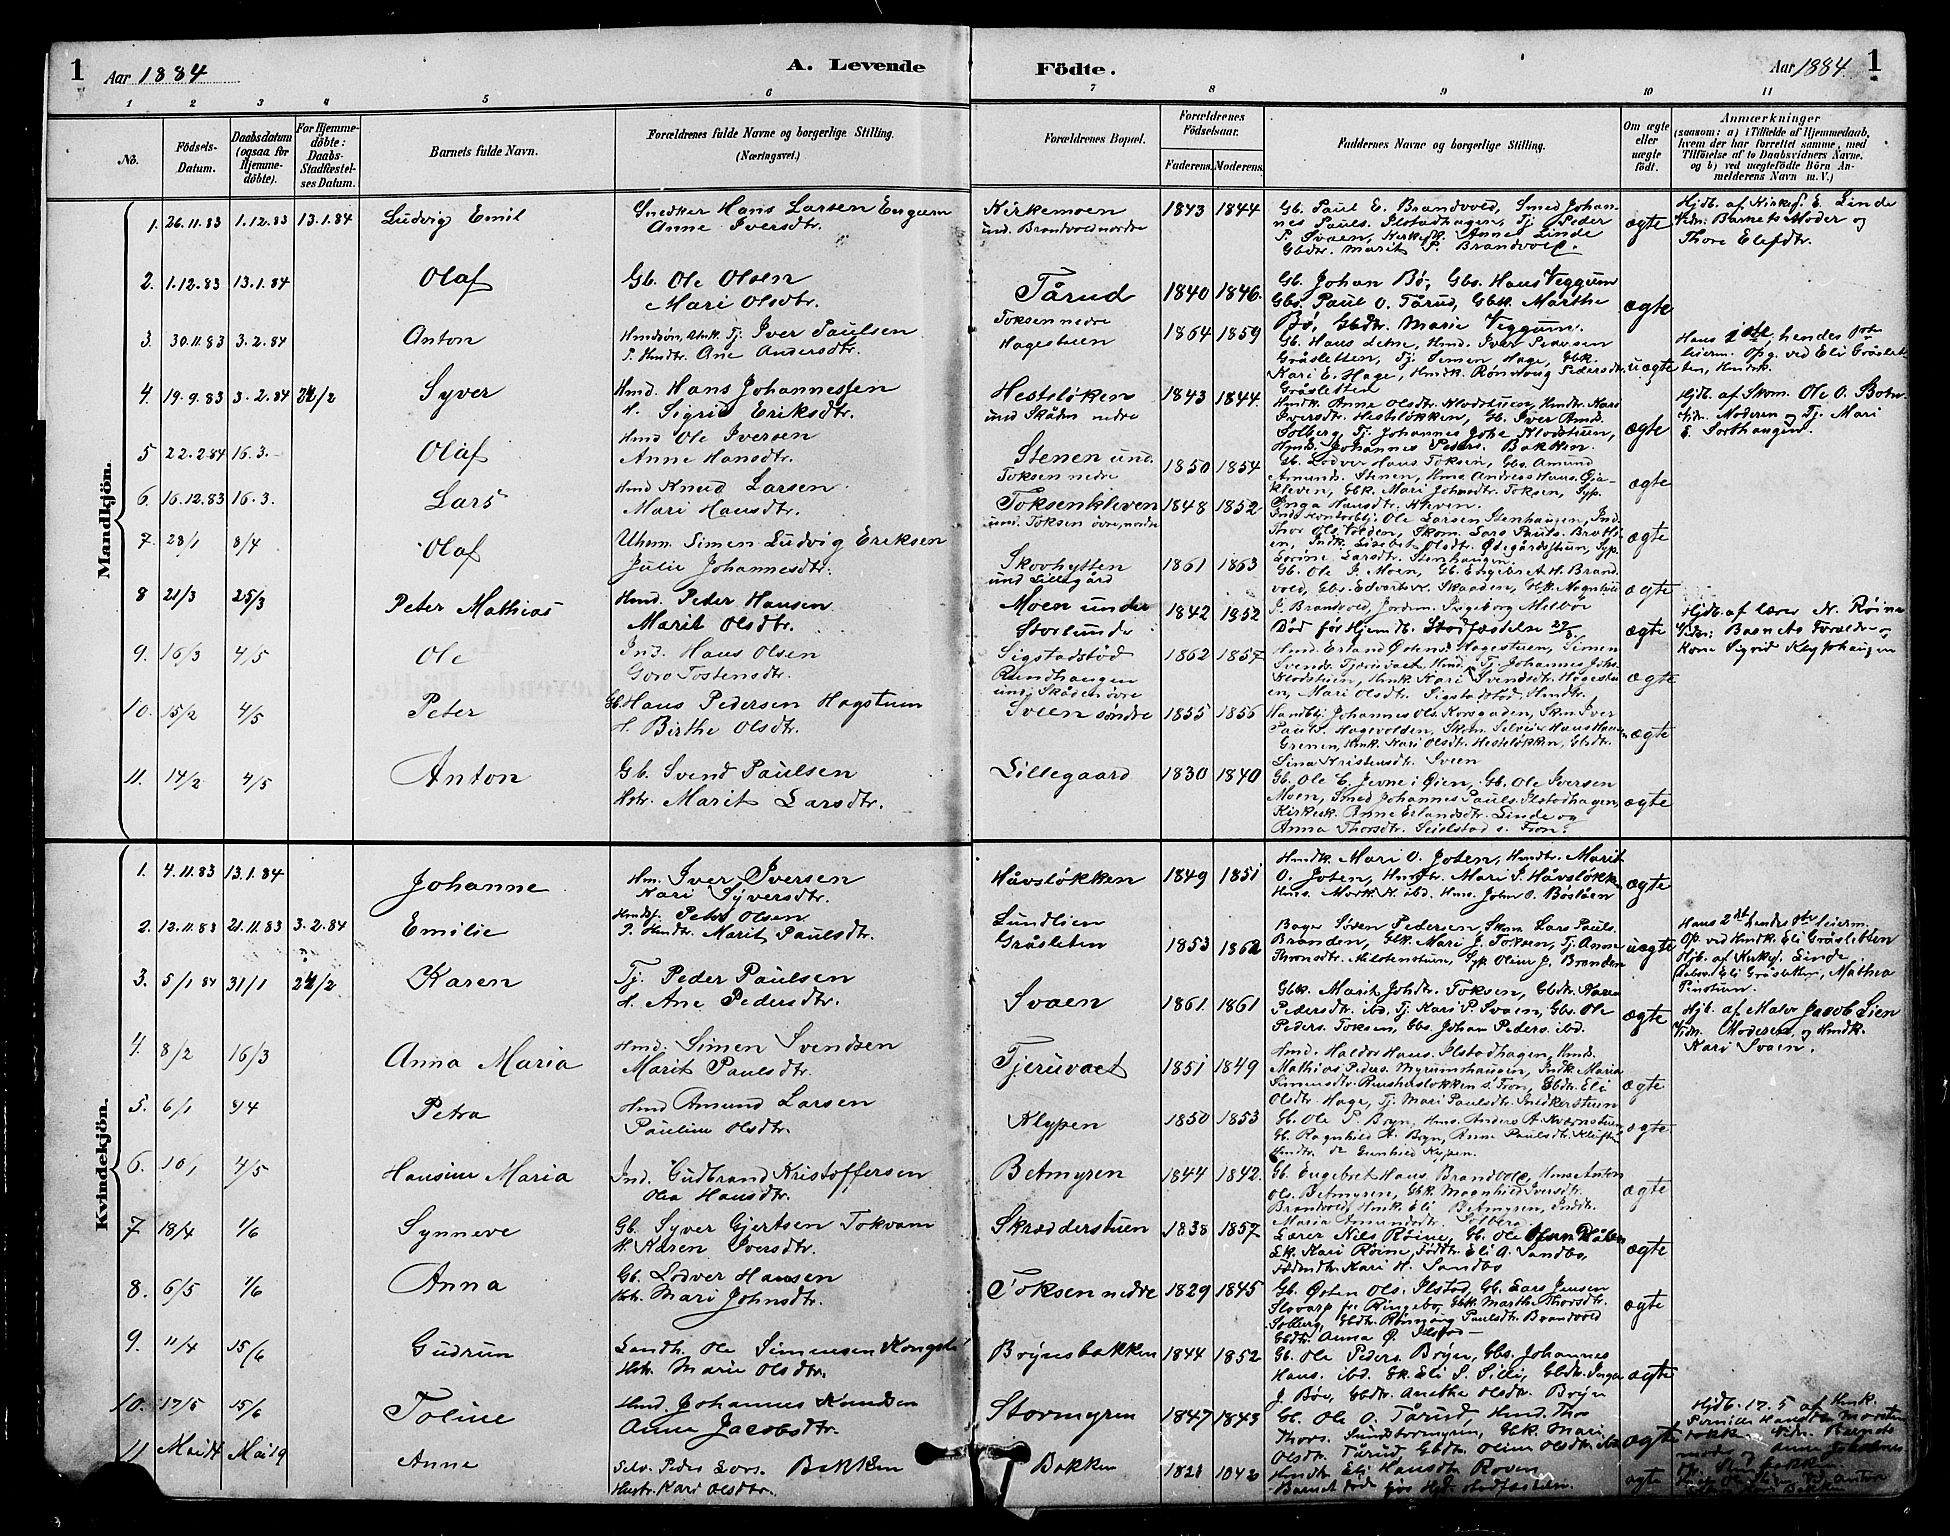 1 Aar 1884 A. Levende Födte. Aar 1884 1
1 2 3 4 5 6 7 8 9 10 11
No. Födsels-Datum. Daabsdatum (ogsaa for Hjemme-döbte). For Hjemme-döbte: Daabs-Stadfæstel-ses Datum. Barnets fulde Navn. Forældrenes fulde Navne og borgerlige Stilling. (Næringsvei.) Forældrenes Bopæl. Forældrenes Födselsaar. Faderens. Moderens. Faddernes Navne og borgerlige Stilling. Om ægte eller uægte födt. Anmærkninger (saasom: a) i Tilfælde af Hjemmedaab, hvem der har forrettet samme, med Tilföielse af to Daabsvidners Navne, og b) ved uægtefödte Börn An-melderens Navn m. V.)
Mandkjön.
1. 26.11.83 1.12.83 13.1.84 Ludvig Emil Snedker Hans Larsen Engum
Anne Iversdtr. Kirkemoen
und. Brandvold nordre 1843 1844 Gb. Paul E. Brandvold, Smed Johan-
nes Pauls. Ilstadhagen, Tj. Peder
P. Svaen, Kirkes. Anne Linde
Gbdtr. Marit P. Brandvold. ægte Hjdb. af Kirkes. E. Linde
Vidn: Barnets Moder og
Thore Elefdtr.
2. 1.12.83 13.1.84 Olaf Gb. Ole Olsen
Mari Olsdtr. Tårud 1840 1846. Gb. Johan Bø, Gbs. Hans Veggum
Gbs. Paul O. Tårud, Gbk. Marthe
Bø, Gbdtr. Marie Veggum. ægte
3. 30.11.83 3.2.84 Anton Tj. Iver Paulsen
Ane Andersdtr. Toksen nedre
Hagestuen 1864 1859 Gb. Hans Letne, Hmd. Iver Pedersen
Gråsletten, Tj. Simen Hage, Gbk.
Kari E. Hage, Hmdk. Rønnaug Pedersdtr.
Gråsletten uægte Hans 1ste, hendes 1ste
leierm. Opg. ved Eli Gråslet-
ten, Hmdsk.
4. 19.9.83 3.2.84 24/2 Syver Hmd. Hans Johannessen
H. Sigrid Eriksdtr. Hestsløken
und Skåden nedre 1843 1844. Hmdk. Anne Olsdtr. Klodstuen, Hmdtr. Kari
Iversdtr. Hestsløkken, Gb. Iver Amd.
Solberg, Tj. Johannes Johs. Klodstuen,
Hmd. Johannes Peders. Bakken. ægte Hjdb. af Skom. Ole O. Bohn
Vidn. Moderen og Tj. Mari
E. Sorthaugen.
5 22.2.84 16.3. Olaf Hmd Ole Iversen
Anne Hansdtr. Stenen und.
Toksen nedre 1850 1854 Gb. Lodver Hans. Toksen, Gbs. Amund
Amunds. Stenen, Hms. Andreas Hans. Øia-
kleven, Gbk. Mari Johnsdtr. Toksen, Syp.
Inga Hansdtr. Kleven. ægte
6. 16.12.83 16.3. Lars Hmd Knud Larsen
Mari Hansdtr. Toksenkleven
und. Toksen øvre, nedre 1848 1852 Ole Larsen Stenhaugen, Ind.
Thor Ols. Volden, Skom. Lars Pauls.
Indk. Lisebet Olsdtr. Ødegårdstuen, Syp.
Lorine Larsdtr. Stenhaugen. ægte
7. 28/1 8/4 Olaf Uhrm. Simen Ludvig Eriksen
Julie Johannesdtr. Skovhytten
und Lillegård 1861 1863 Gb. Ole J. Moen, Gb. Engebr. A. H. Brand-
vold, Gbs. Edvart Skaaden, Gbk. Magnhild
J. Brandvold, Jordm. Ingeborg Melbør ægte
8 21/3 25/3 Peter Mathias Hmd. Peder Hansen
Marit Olsdtr. Moen under
Storlunde 1842 1852 Død før Hjemdb. Stadfæstelse 27/3. ægte Hjdb. af lærer N. Røine
Vidn: Barnets Forældre
Kone Sigrid
9. 16/3 4/5 Ole Ind. Hans Olsen
Goro Tostensdtr. Sigstadstød
Rundhaugen
und. Skåden øvre 1862 1857 Hmd. Erland Østens. Hagestuen, Simen
Svends. Tjernvaet, Hmd. Tj. Johannes Johs.
Klodstuen, Hmk. Kari Svendsdtr. Hagestu-
en, Mari Olsdtr. Sigstadstød, Hmdtr. ægte
10. 15/2 4/5 Peter Gb. Hans Pedersen Hagstuen
H. Birthe Olsdtr. Sveen søndre 1855 1856 Handbtj. Johannes Ols. Korsgaden, Skm Iver
Pauls. Hagevolden, Skom. Hans Hans.
Grenen, Hmk. Kari Olsdtr. Hestsløkken, Gbdtr.
Lina Kristensdtr. Sveen ægte
11. 14/2 4/5 Anton Gb. Svend Paulsen
Hstr. Marit Larsdtr. Lillegaard 1830 1840 Gb. Ole E. Jevne i Øien, Gb. Ole Iversen
Moen, Smed Johannes Pauls. Ilstadhagen,
Kirkesk. Anne Erlandsdtr. Linde og
Anna Thorsdtr. Seielstad s. Fron. ægte
Kvindekjön.
1. 4.11.83 13.1.84 Johanne Hm. Iver Iversen
Kari Syversdtr. Håvsløkken 1849 1851 Hmdk. Mari O. Joten, Hmdtr. Marit
O. Joten, Hmdtr. Mari I. Håvsløkken
Hms. Mork K. ibd. Hms. John O. Bøsløen ægte
2. 12.11.83 21.11.83 3.2.84 Emilie Peter Olsen
P. Hmdtr. Marit Paulsdtr. Lundlien
Gråsleten 1853 1862 Bager Søren Pedersen, Skom Lars Pauls.
Brånden, Gbk. Mari J. Toksen, Tj. Anne
Thronsdtr. Milstenstuen, Syp. Oline J. Brånden uægte Hans 2det hendes 1ste leierm.
Op. ved Hmdk. Eli Gråsletten
Hjb. af Kirkes. Linde
Eli Gråsletten, Mathea
3. 5/1 84 31/1 24/2 Karen Tj. Peder Paulsen
H. Ane Pedersdtr. Svaen 1861. 1861 Gbk. Marit Johdtr. Toksen, Gbdtr. Karen
Pedersdtr. ibd. Tj. Kari P. Svaen, Gbs. Ole
Peders. Toksen, Gbs. Johan Peders. ibd. ægte Hjb. af Maler Jacob Lien
Vidn. Moderen og Hmdk.
Kari Svaen.
4. 8/2 16/3 Anna Maria Hmd. Simen Svendsen
Marit Paulsdtr. Tjernvaet 1851 1849 Hmd. Haldor Hans. Ilstadhagen, Hmds.
Mathias Peders. Myrumshaugen, Indk. Maria
Simensdtr. s. Fron, Gbdtr. Eli
Olsdtr. Hage, Tj. Mari Paulsdtr. Snedkerstuen ægte
5. 6/1 4/4 Petra Hmd Amund Larsen
Pauline Olsdtr. Klypen 1850 1853 Gb. Ole P. Bryn, Hms. Anders A. Kværnstuen,
Gb. Ragnhild A. Bryn, Anne Paulsdtr. Kløften
Hmdtr. Gunhild Klypen. ægte
6. 10/1 4/5 Hansine Maria Ind. Gudbrand Kristoffersen
Olia Hansdtr. Betmyren 1844 1842. Gb. Engebret Hans. Brandvold, Hms Anton
Ols. Betmyren, Gbk. Magnhild Iversdtr.
Brandvold, Hmk. Eli Betmyren, Indtr.
Maria Amundsdtr. Solberg ægte
7 18/4 1/6 Synneve Gb. Syver Gjertsen Tokvam
H. Karen Iversdtr. Skrædderstuen 1838 1857 Lærer Nils Røine, Gb. Ole
Lk. Kari Røine, Eli A. Sandbo
Kari H. Sandbo ægte
8. 6/5 1/6 Anna Gb. Lodver Hansen
Hstr. Mari Johnsdtr. Toksen nedre 1829 1845 Gb. Østen Ols. Ilstad, Gb. Lars Jensen
fr. Ringebo, Gbk. Marthe Thorsdtr.
Solberg, Gbdtr. Rønnaug Paulsdtr. Brandvold
Gbdtr. Anna Ø. Ilstad ægte
9. 11/4 15/6 Gudrun Landh. Ole Simensen Kongsli
Hstr. Marie Olsdtr. Brynsbakken 1844 1852 Gb. Ole Peders. Bryn, Gbs. Johannes
Hans. ibd. Gk. Eli S. Silli, Gbdtr. Inga
J. Bøe, Gbdtr. Anethe Olsdtr. Bryn ægte
10. 17/5 15/6 Toline Hmd. Johannes Knudsen
Anne Jacobsdtr. Stormyren 1847 1843 Gb. Ole O. Tårud, Hmd. Thor
Thors. Gbk. Mari
Olsdtr. Tårud Gbdtr. Oline Olsdtr. ægte Hjdb. 17.5 af Hmk.
Pernille Hansdtr.
Vidn. Barnets
moder og Anne
11 Mai 4 Mai 9 Anne Selv. Peder Lars. Bakken
Hustr. Kari Olsdtr. Bakken 1842 Hmdtr. Eli Hansdtr.
Barnet døde før Hjd. stadfæstelse. ægte